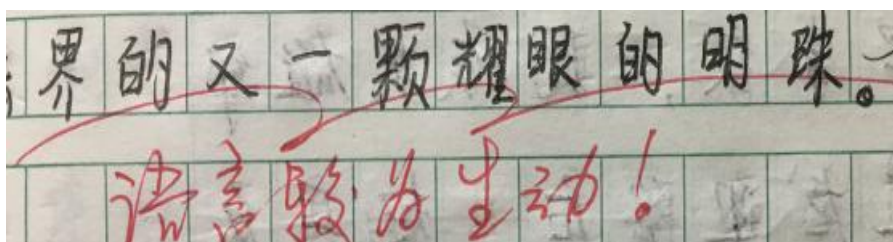 界的又一颗耀眼的明珠。
语言较为生动！